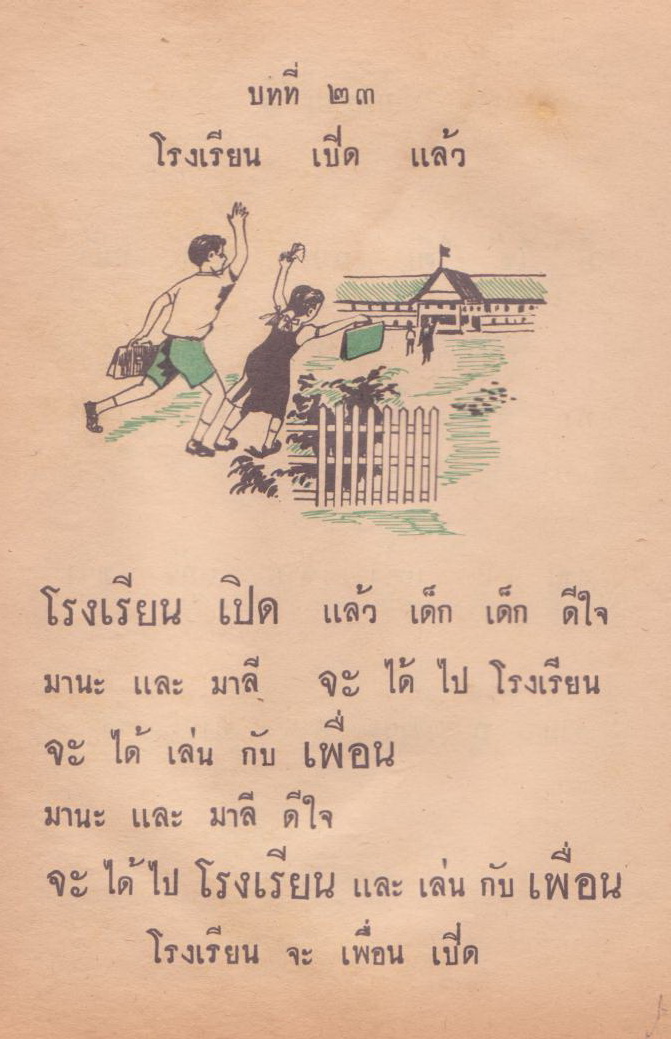 บทที่ ๒๓
โรงเรียน เปิด แล้ว
โรงเรียน เปิด แล้ว เด็ก เด็ก ดีใจ
มานะ และ มาลี จะ ได้ ไป โรงเรียน
จะ ได้ เล่น กับ เพื่อน
มานะ และ มาลี ดีใจ
จะ ได้ ไป โรงเรียน และ เล่น กับ เพื่อน
โรงเรียน จะ เพื่อน เปิด